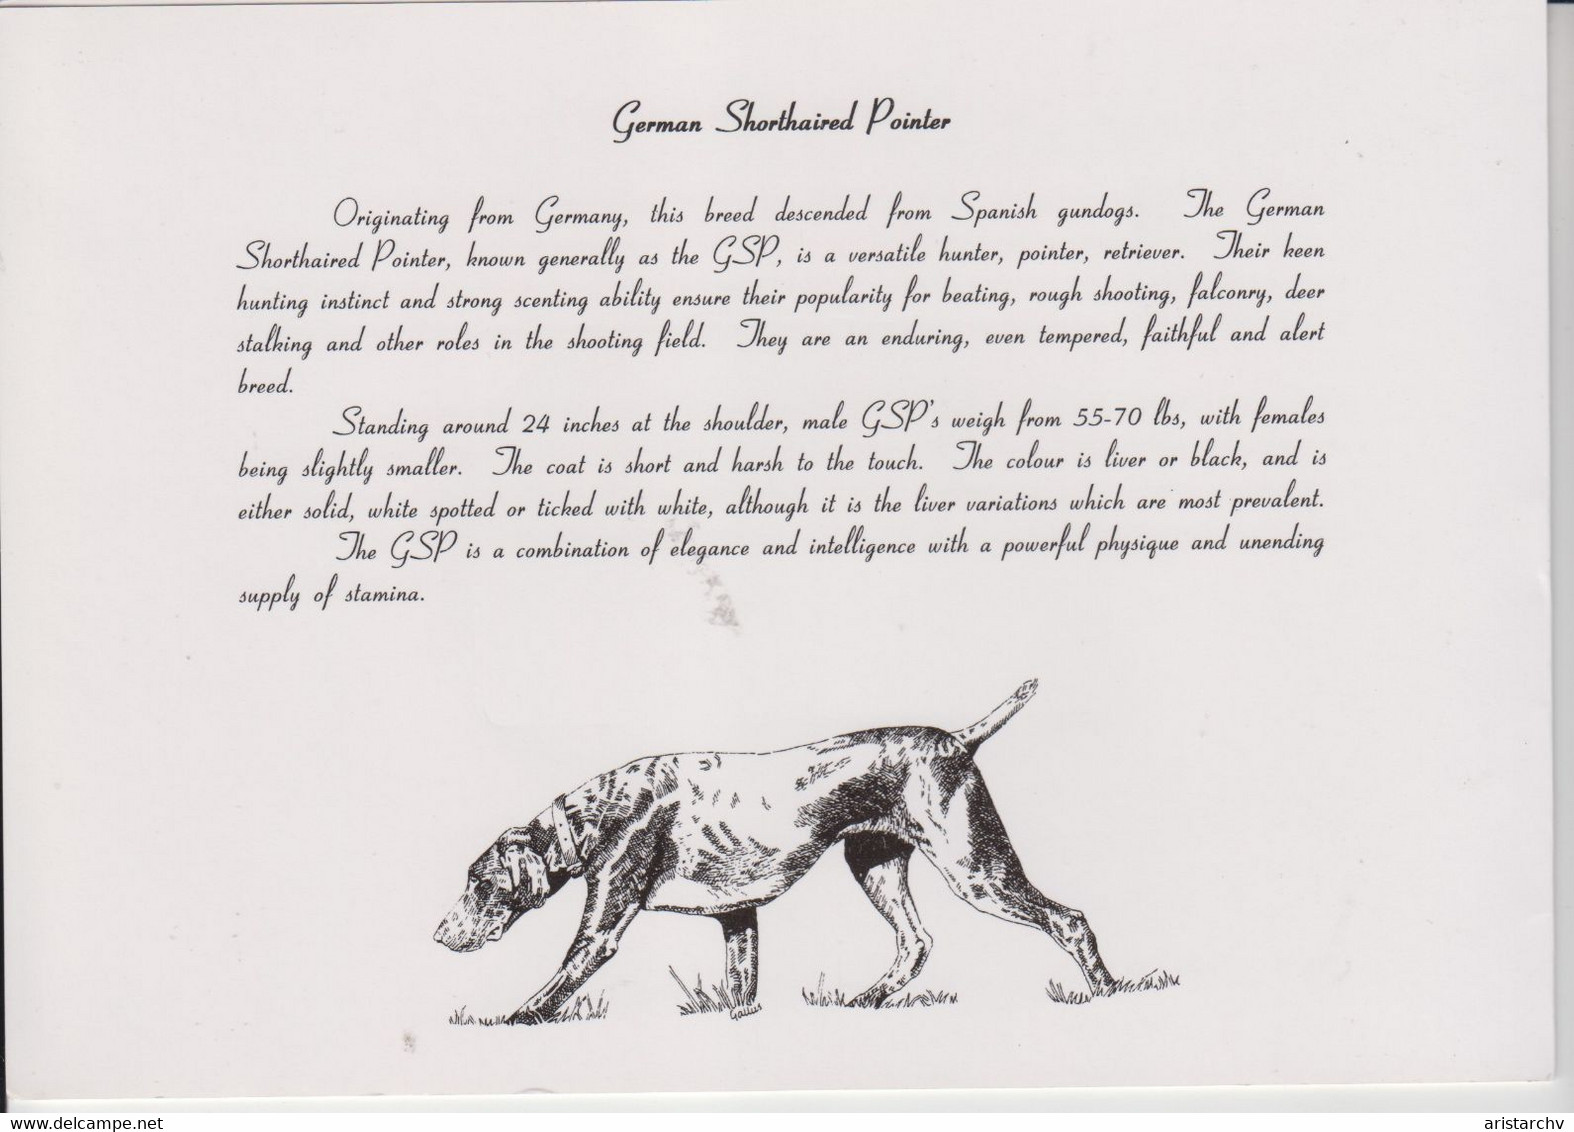 German Shorthaired Pointer
Originating from Germany, this breed descended from Spanish gundogs. The German
Shorthaired Pointer, known generally as the GSP, is a versatile hunter, pointer, retriever. Their keen
hunting instinct and strong scenting ability ensure their popularity for beating, rough shooting, falconry, deer
stalking and other roles in the shooting field. They are an enduring, even tempered, faithful and alert
breed.
Standing around 24 inches at the shoulder, male GSP's weigh from 55-70 lbs, with females
being slightly smaller. The coat is short and harsh to the touch. The colour is liver or black, and is
either solid, white spotted or ticked with white, although it is the liver variations which are most prevalent.
The GSP is a combination of elegance and intelligence with a powerful physique and unending
supply of stamina.
Gallus
www.delcampe.net
aristarchv